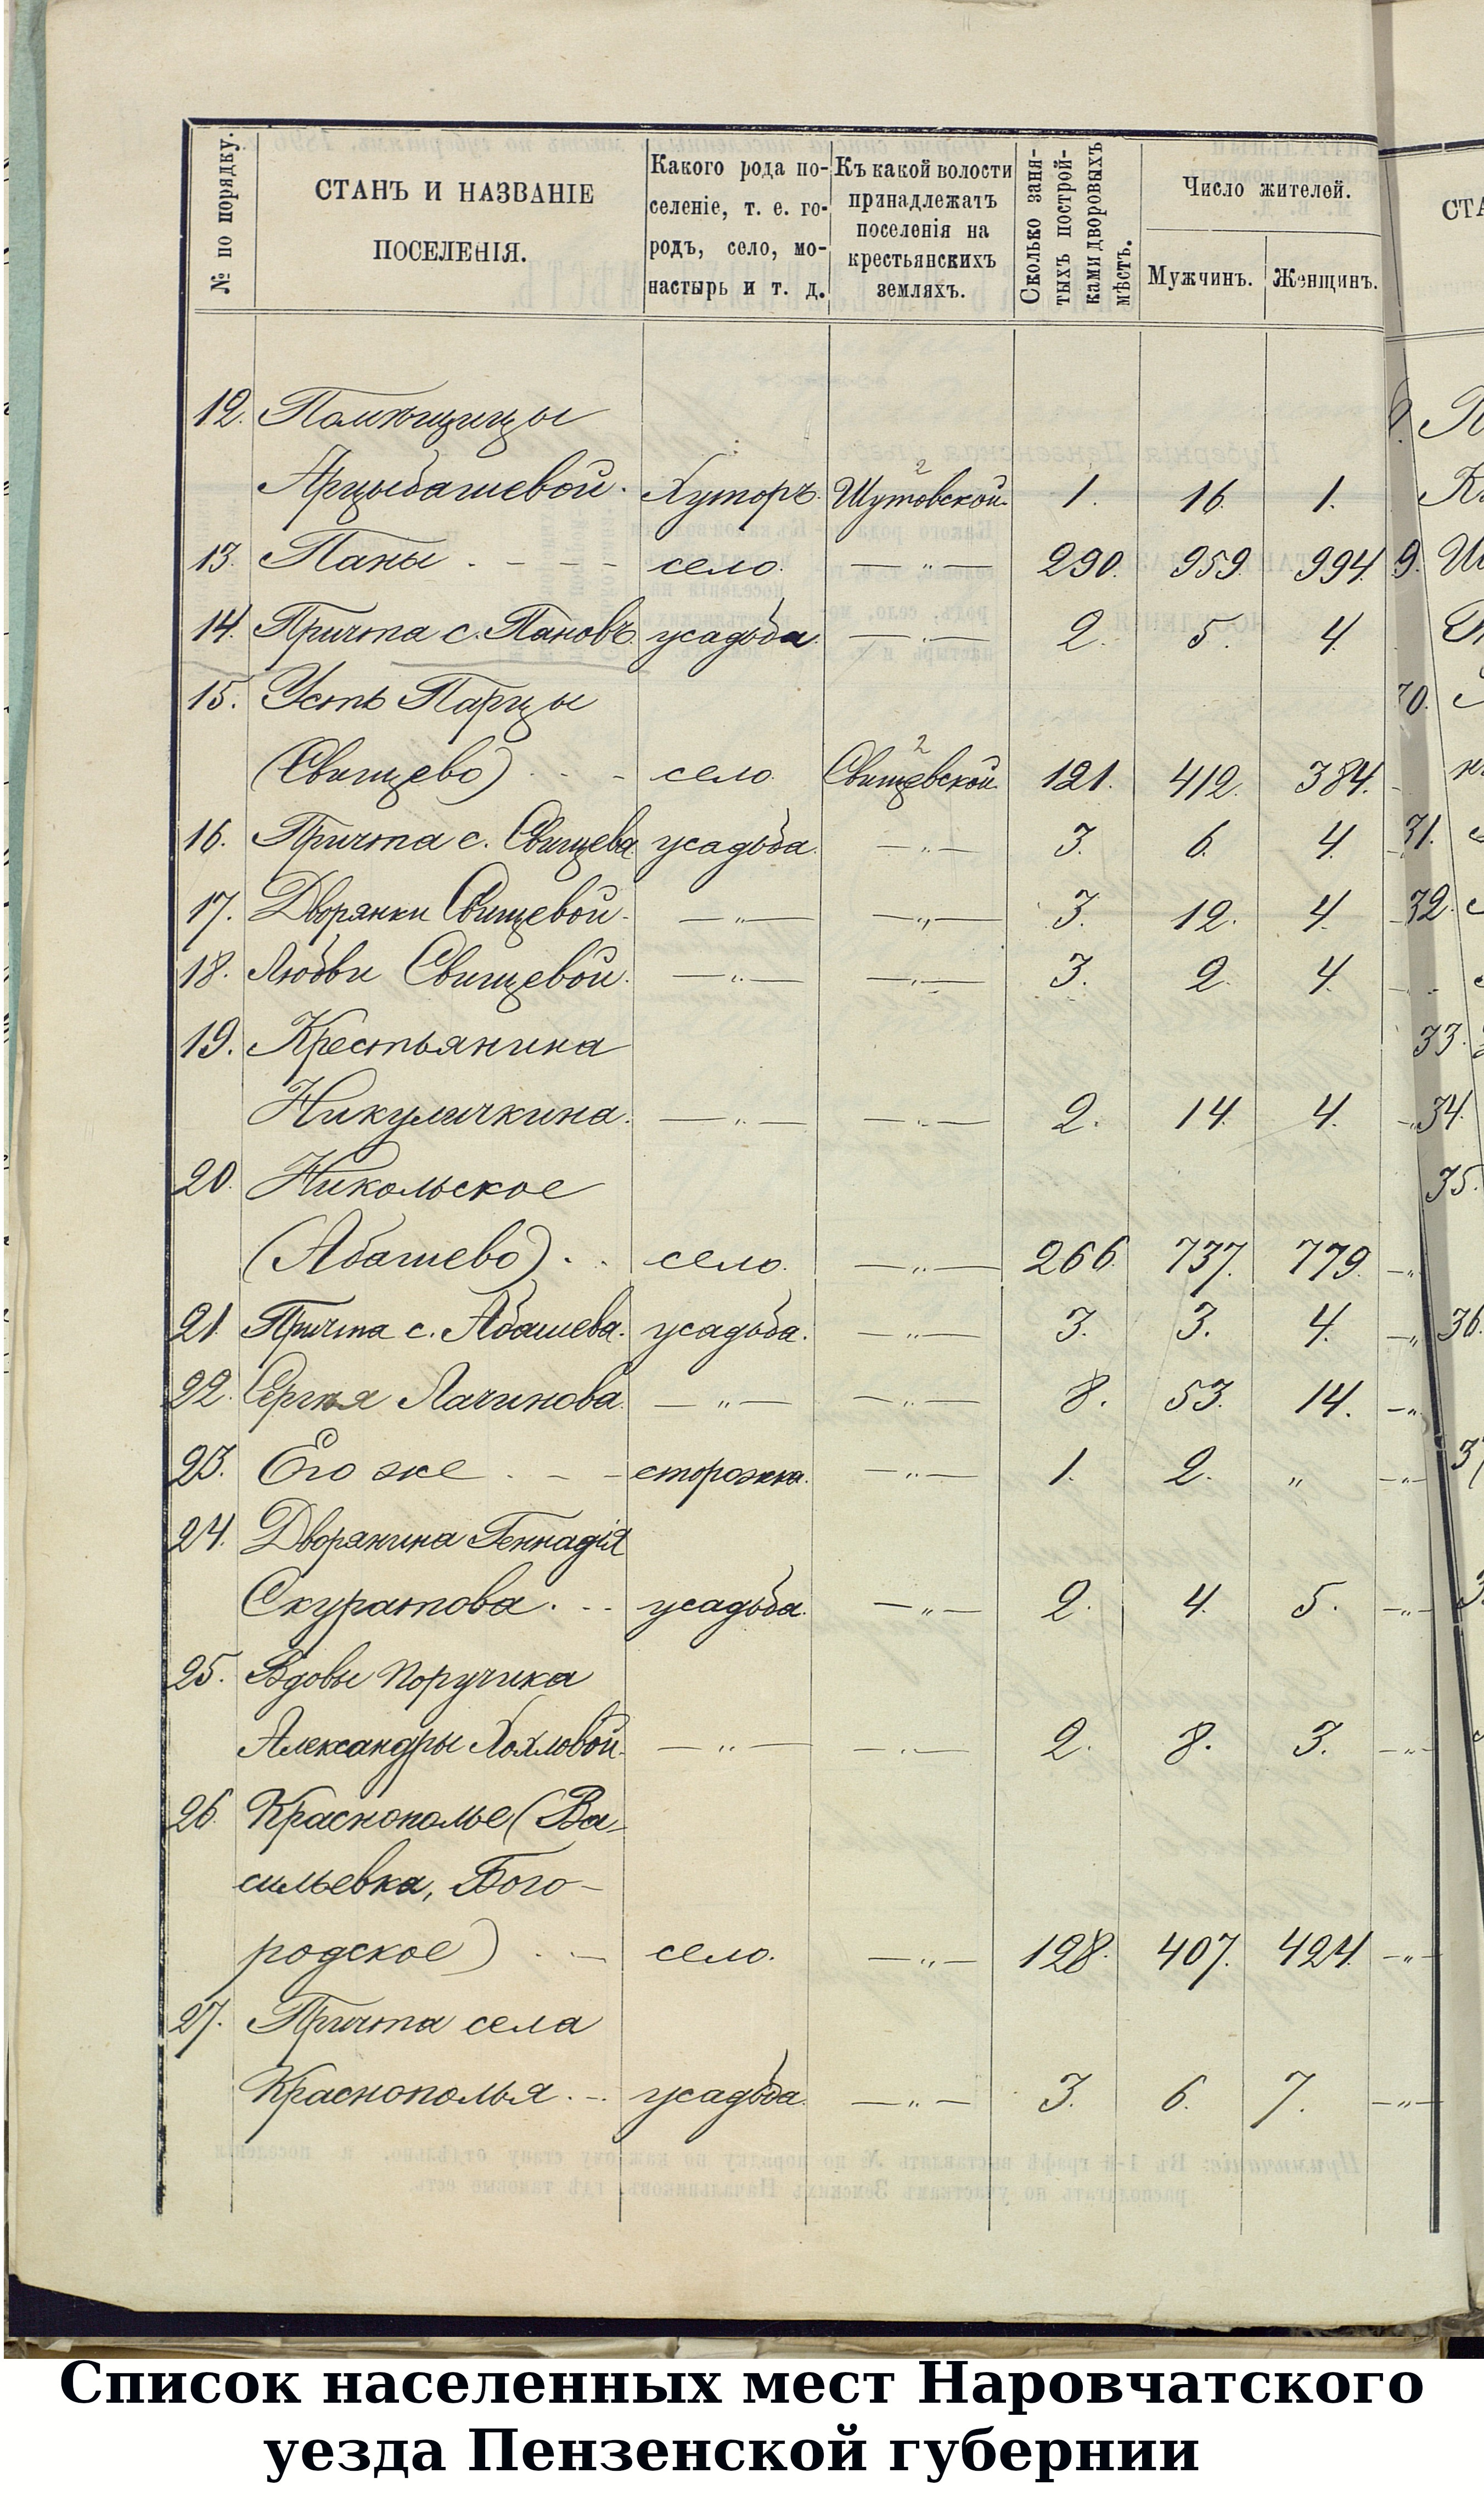 № по порядку.
СТАНЪ И НАЗВАНІЕ
ПОСЕЛЕНІЯ.
Какого рода по-
селеніе, т. е. го-
родъ, село, мо-
настырь и т. д.
Къ какой волости
принадлежатъ
поселенія на
крестьянскихъ
земляхъ.
Сколько заня-
тыхъ построй-
ками дворовыхъ
мѣстъ.
Число жителей.
Мужчинъ.
Женщинъ.
12. Помѣщицы
Арцыбашевой. Хуторъ. Шутовской. 2 1. 16. 1.
13. Паны - - - - село. —„— 290. 959. 994.
14. Причта с. Пановъ. усадьба. —„— 2. 5. 4.
15. Усть Парцы
(Свищево) - - - село. Свищевской. 2 121. 412. 384.
16. Причта с. Свищева. усадьба. —„— 3. 6. 4.
17. Дворянки Свищевой. —„— —„— 3. 12. 4.
18. Любви Свищевой. —„— —„— 3. 2. 4.
19. Крестьянина
Никуличкина. —„— —„— 2. 14. 4.
20. Никольское
(Абашево) . . село. —„— 266. 737. 779. —„
21. Причта с. Абашева. усадьба. —„— 3. 3. 4. —„
22. Сергѣя Лачинова. —„— —„— 8. 53. 14. —„
23. Его же . - - сторожка. —„— 1. 2. „ —„—
24. Дворянина Геннадія
Скуратова . - - усадьба. —„— 2. 4. 5. —„—
25. Вдовы поручика
Александры Хохловой. —„— —„— 2. 8. 3. —„—
26. Краснополье (Ва-
сильевка, Бого-
родское) . - село. —„— 128. 407. 424. —„—
27. Причта села
Краснополья . - усадьба. —„— 3. 6. 7. —„—
Список населенных мест Наровчатского
уезда Пензенской губернии